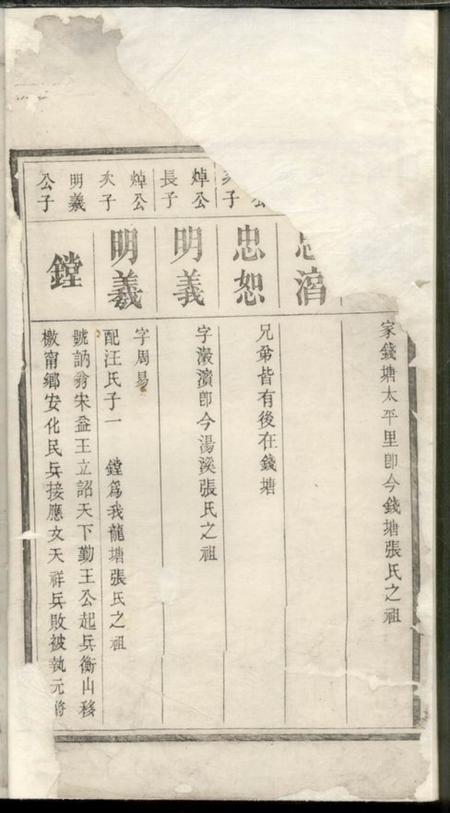 家錢塘太平里卽今錢塘張氏之祖
忠
公
子
忠恕
兄弟皆有後在錢塘
焯公
長子
明義
字瀫濱卽今湯溪張氏之祖
焯公
次子
明羲
字周易
配汪氏子一 鏜爲我龍塘張氏之祖
明羲
公子
鏜
號訥翁宋益王立詔天下勤王公起兵衡山移
檄甯鄉安化民兵接應文天祥兵敗被執元將